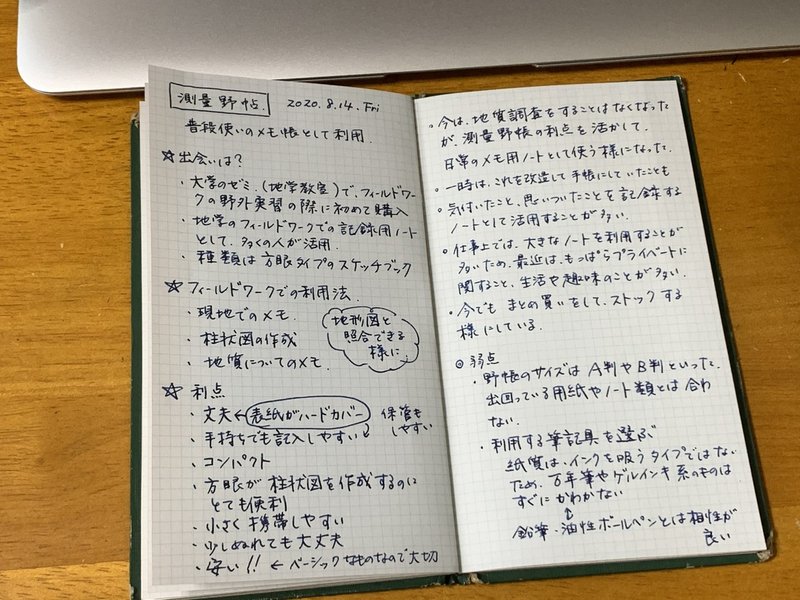 測量野帖 2020.8.14.Fri
普段使いのメモ帳として利用.
☆出会いは?
・大学のゼミ.(地学教室)で、フィールドワー
クの野外実習の際に初めて購入
・地学のフィールドワークでの記録用ノート
として、多くの人が活用.
・種類は方眼タイプのスケッチブック
☆フィールドワークでの利用法.
・現地でのメモ.
・柱状図の作成
・地質についてのメモ.
地形図と
照合できる
様に...
☆利点
・丈夫←表紙がハードカバー 保管も
しやすい
・手持ちでも記入しやすい
・コンパクト
・方眼が柱状図を作成するのに
とても便利
・小さく携帯しやすい
・少しぬれても大丈夫
・安い!! ←ベーシックなものなので大切
・今は、地質調査をすることはなくなった
が、測量野帳の利点を活かして、
日常のメモ用ノートとして使う様になった.
・一時は、これを改造して手帳にしていたことも
・気付いたこと、思いついたことを記録する
ノートとして活用することが多い.
・仕事上では、大きなノートを利用することが
多いため、最近は、もっぱらプライベートに
関すること、生活や趣味のことが多い.
・今でも まとめ買いをして、ストックする
様にしている.
◎弱点
・野帳のサイズは A判やB判といった、
出回っている用紙やノート類とは合わ
ない.
・利用する筆記具を選ぶ
紙質は、インクを吸うタイプではない
ため、万年筆やゲルインキ系のものは
すぐにかわかない
↕
鉛筆・油性ボールペンとは相性が
良い